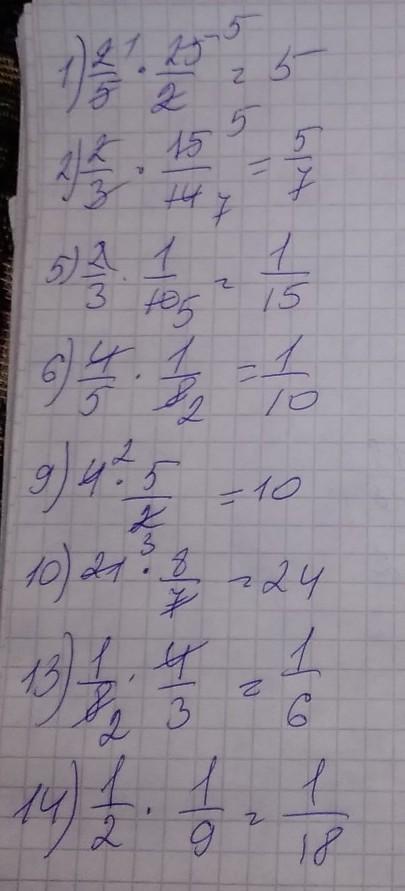 1) 2/5 ¹ · 25/2 ⁵ = 5
2) 2/3 · 15/14 ⁵ ₇ = 5/7
5) 2/3 · 1/10 ₅ = 1/15
6) 4/5 · 1/8 ₂ = 1/10
9) 4 ² · 5/2 = 10
10) 21 ³ · 8/7 = 24
13) 1/8 ₂ · 4/3 = 1/6
14) 1/2 · 1/9 = 1/18